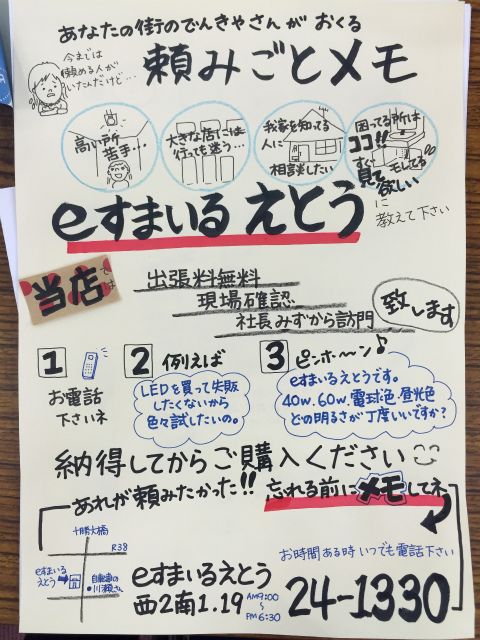 あなたの街のでんきやさんが おくる
今までは
頼める人が
いたんだけど…
頼みごとメモ
高い所
苦手…
大きな店では
行っても迷う…
我家を知ってる
人に
相談したい
困ってる所は
ココ!!
すぐ
モレてる
見て
欲しい
eすまいるえとう
に
教えて下さい
当店では
出張料無料
現場確認
社長みずから訪門
致します
1
お電話
下さいネ
2 例えば
LEDを買って失敗
したくないから
色々試したいの。
3 ピンポ〜ン♪
eすまいるえとうです。
40w.60w.電球色.昼光色
どの明るさが丁度いいですか?
納得してからご購入ください
あれが頼みたかった!! 忘れる前にメモしてネ
十勝大橋
R38
eすまいる
えとう
自転車の
川瀬さん
eすまいるえとう
西2南1.19
AM9:00
〜
PM6:30
お時間ある時いつでも電話下さい
24-1330